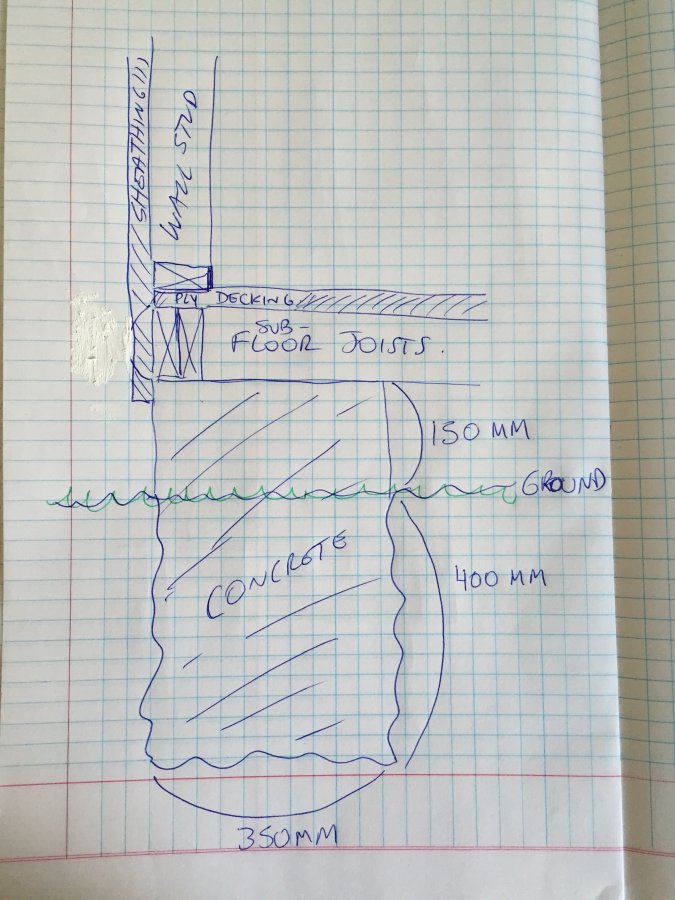 SHEATHING!!!
WALL STUD
PLY DECKING
SUB-
FLOOR JOISTS.
150 MM
GROUND
CONCRETE
400 MM
350MM